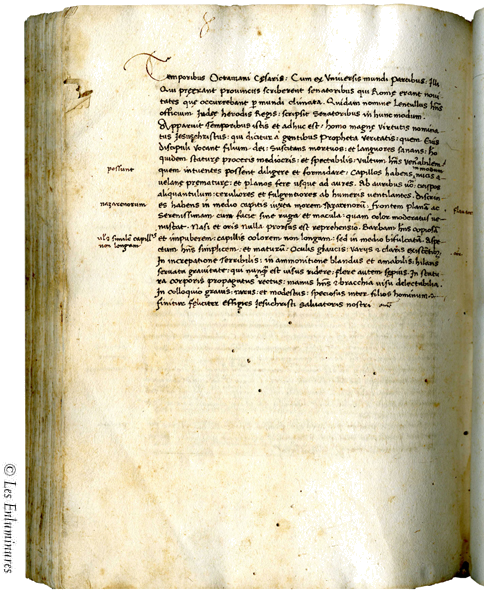 Temporibus Octaviani Cesaris: Cum ex Universis mundi Partibus: Illi
Qui preerant provinciis scriberent senatoribus qui Rome erant novi
tates que occurrebant p mundi climata. Quidam nomine Lentullus hns
officium Iudex herodis Regis: scripsit Senatoribus in hunc modum.
Apparuit temporibus istis et adhuc est: homo magne Virtutis nomina
tus Iesus christus: qui dicitur a gentibus Propheta Veritatis: quem Eius
discipuli vocant filium dei: Suscitans mortuos: et languores sanans: ho
quidem stature proceris mediocris: et spectabilis: vultum hns venerabilem
possunt
quem intuentes possent diligere et formidare: Capillos habens nucis
velane premature: et planos fere usque ad aures. Ab auribus crispos
aliquantulum: ceruliores et fulgentiores ab humeris ventilantes: Discrim
nazarenorum
es habens in medio capitis iuxta morem: frontem planam
planam
Serenissimam: cum facie sine ruga et macula: quam color moderatus ve
nustat. Nasi et oris nulla prorsus est reprehensio. Barbam hns copiosam
vl's similem capillis
non longam
et impuberem: capillis colorem non longam: sed in medio bifulcatam. Aspe
ctum hns simplicem: et maturum: Oculis glaucis: Variis et claris existentibus
In increpatione terribilis: in ammonitione blandus et amabilis: hilaris
servata gravitate: qui nunq est visus ridere: flere autem sepius: In statu
ra corporis propagatus rectus: manus hns et bracchia visu delectabilia.
In colloquio gravis: rarus: et modestus: speciosus inter filios hominum
finitur feliciter effigies Iesuchristi salvatoris nostri
© Les Enluminures